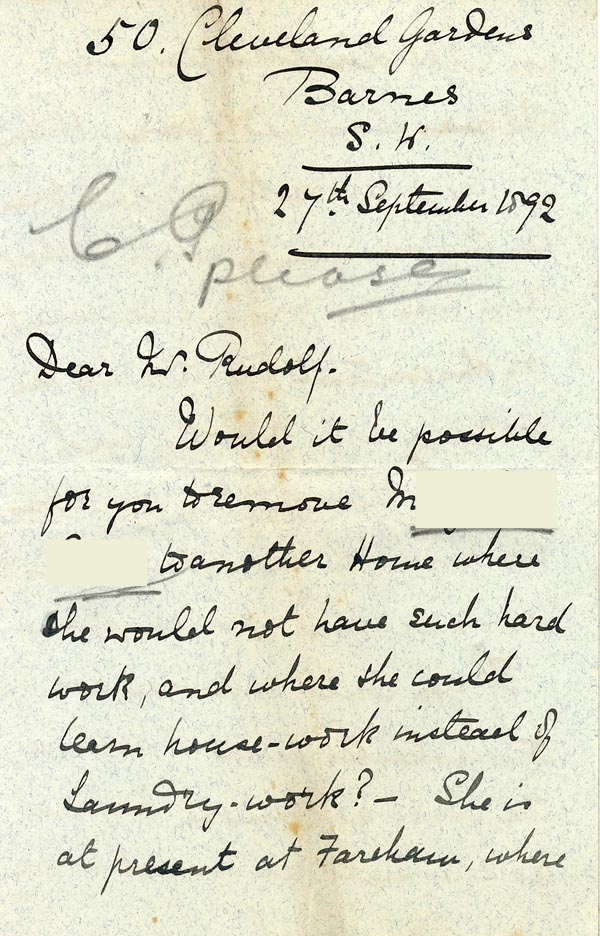 50. Cleveland Gardens
Barnes
S. W.
27th September 1892
C.P.
please
Dear Mr. Rudolf.
Would it be possible
for you to remove M
to another Home where
she would not have such hard
work, and where she could
learn house-work instead of
Laundry-work? - She is
at present at Fareham, where